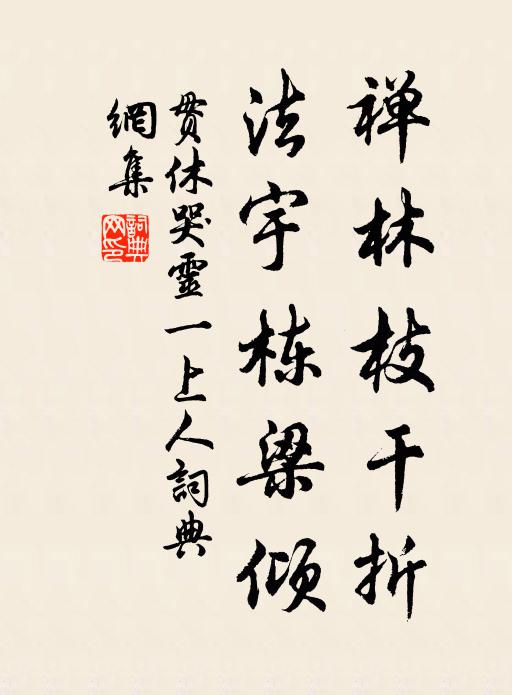 禅林枝干折
法宇栋梁倾
贯休哭靈一上人詞典
網集
詞典
网印